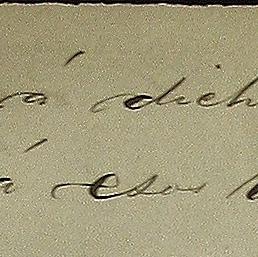 á dich
á esos